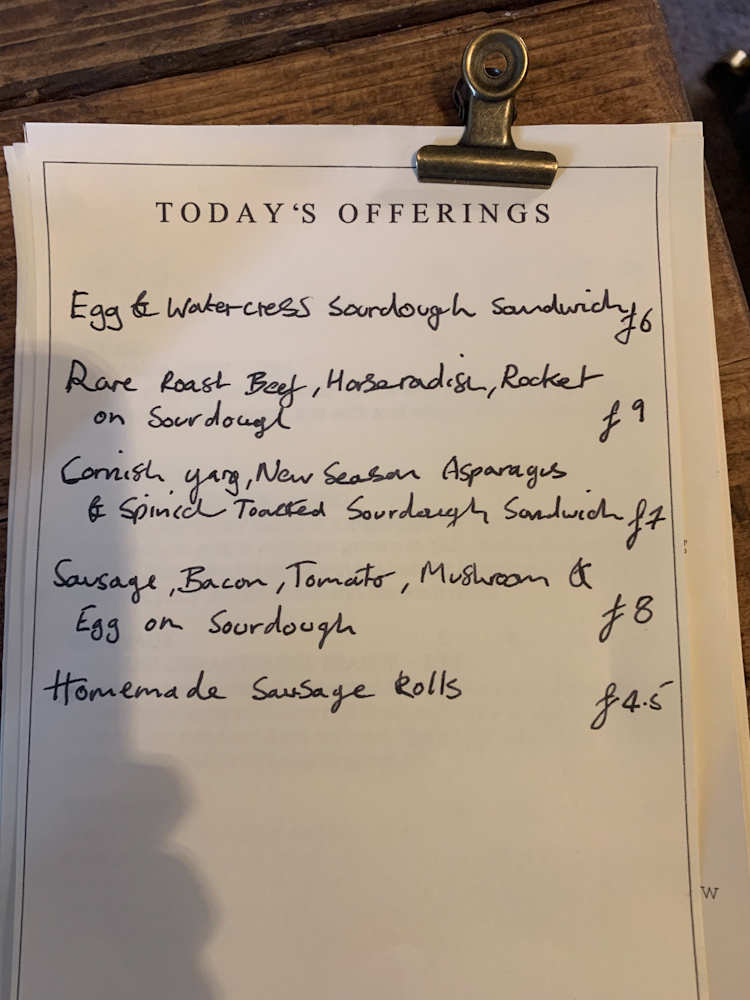 TODAY'S OFFERINGS
Egg & Watercress Sourdough Sandwich £6
Rare Roast Beef, Horseradish, Rocket
on Sourdough £9
Cornish yarg, New Season Asparagus
& Spinich Toasted Sourdough Sandwich £7
Sausage, Bacon, Tomato, Mushroom &
Egg on Sourdough £8
Homemade Sausage Rolls £4.5
W